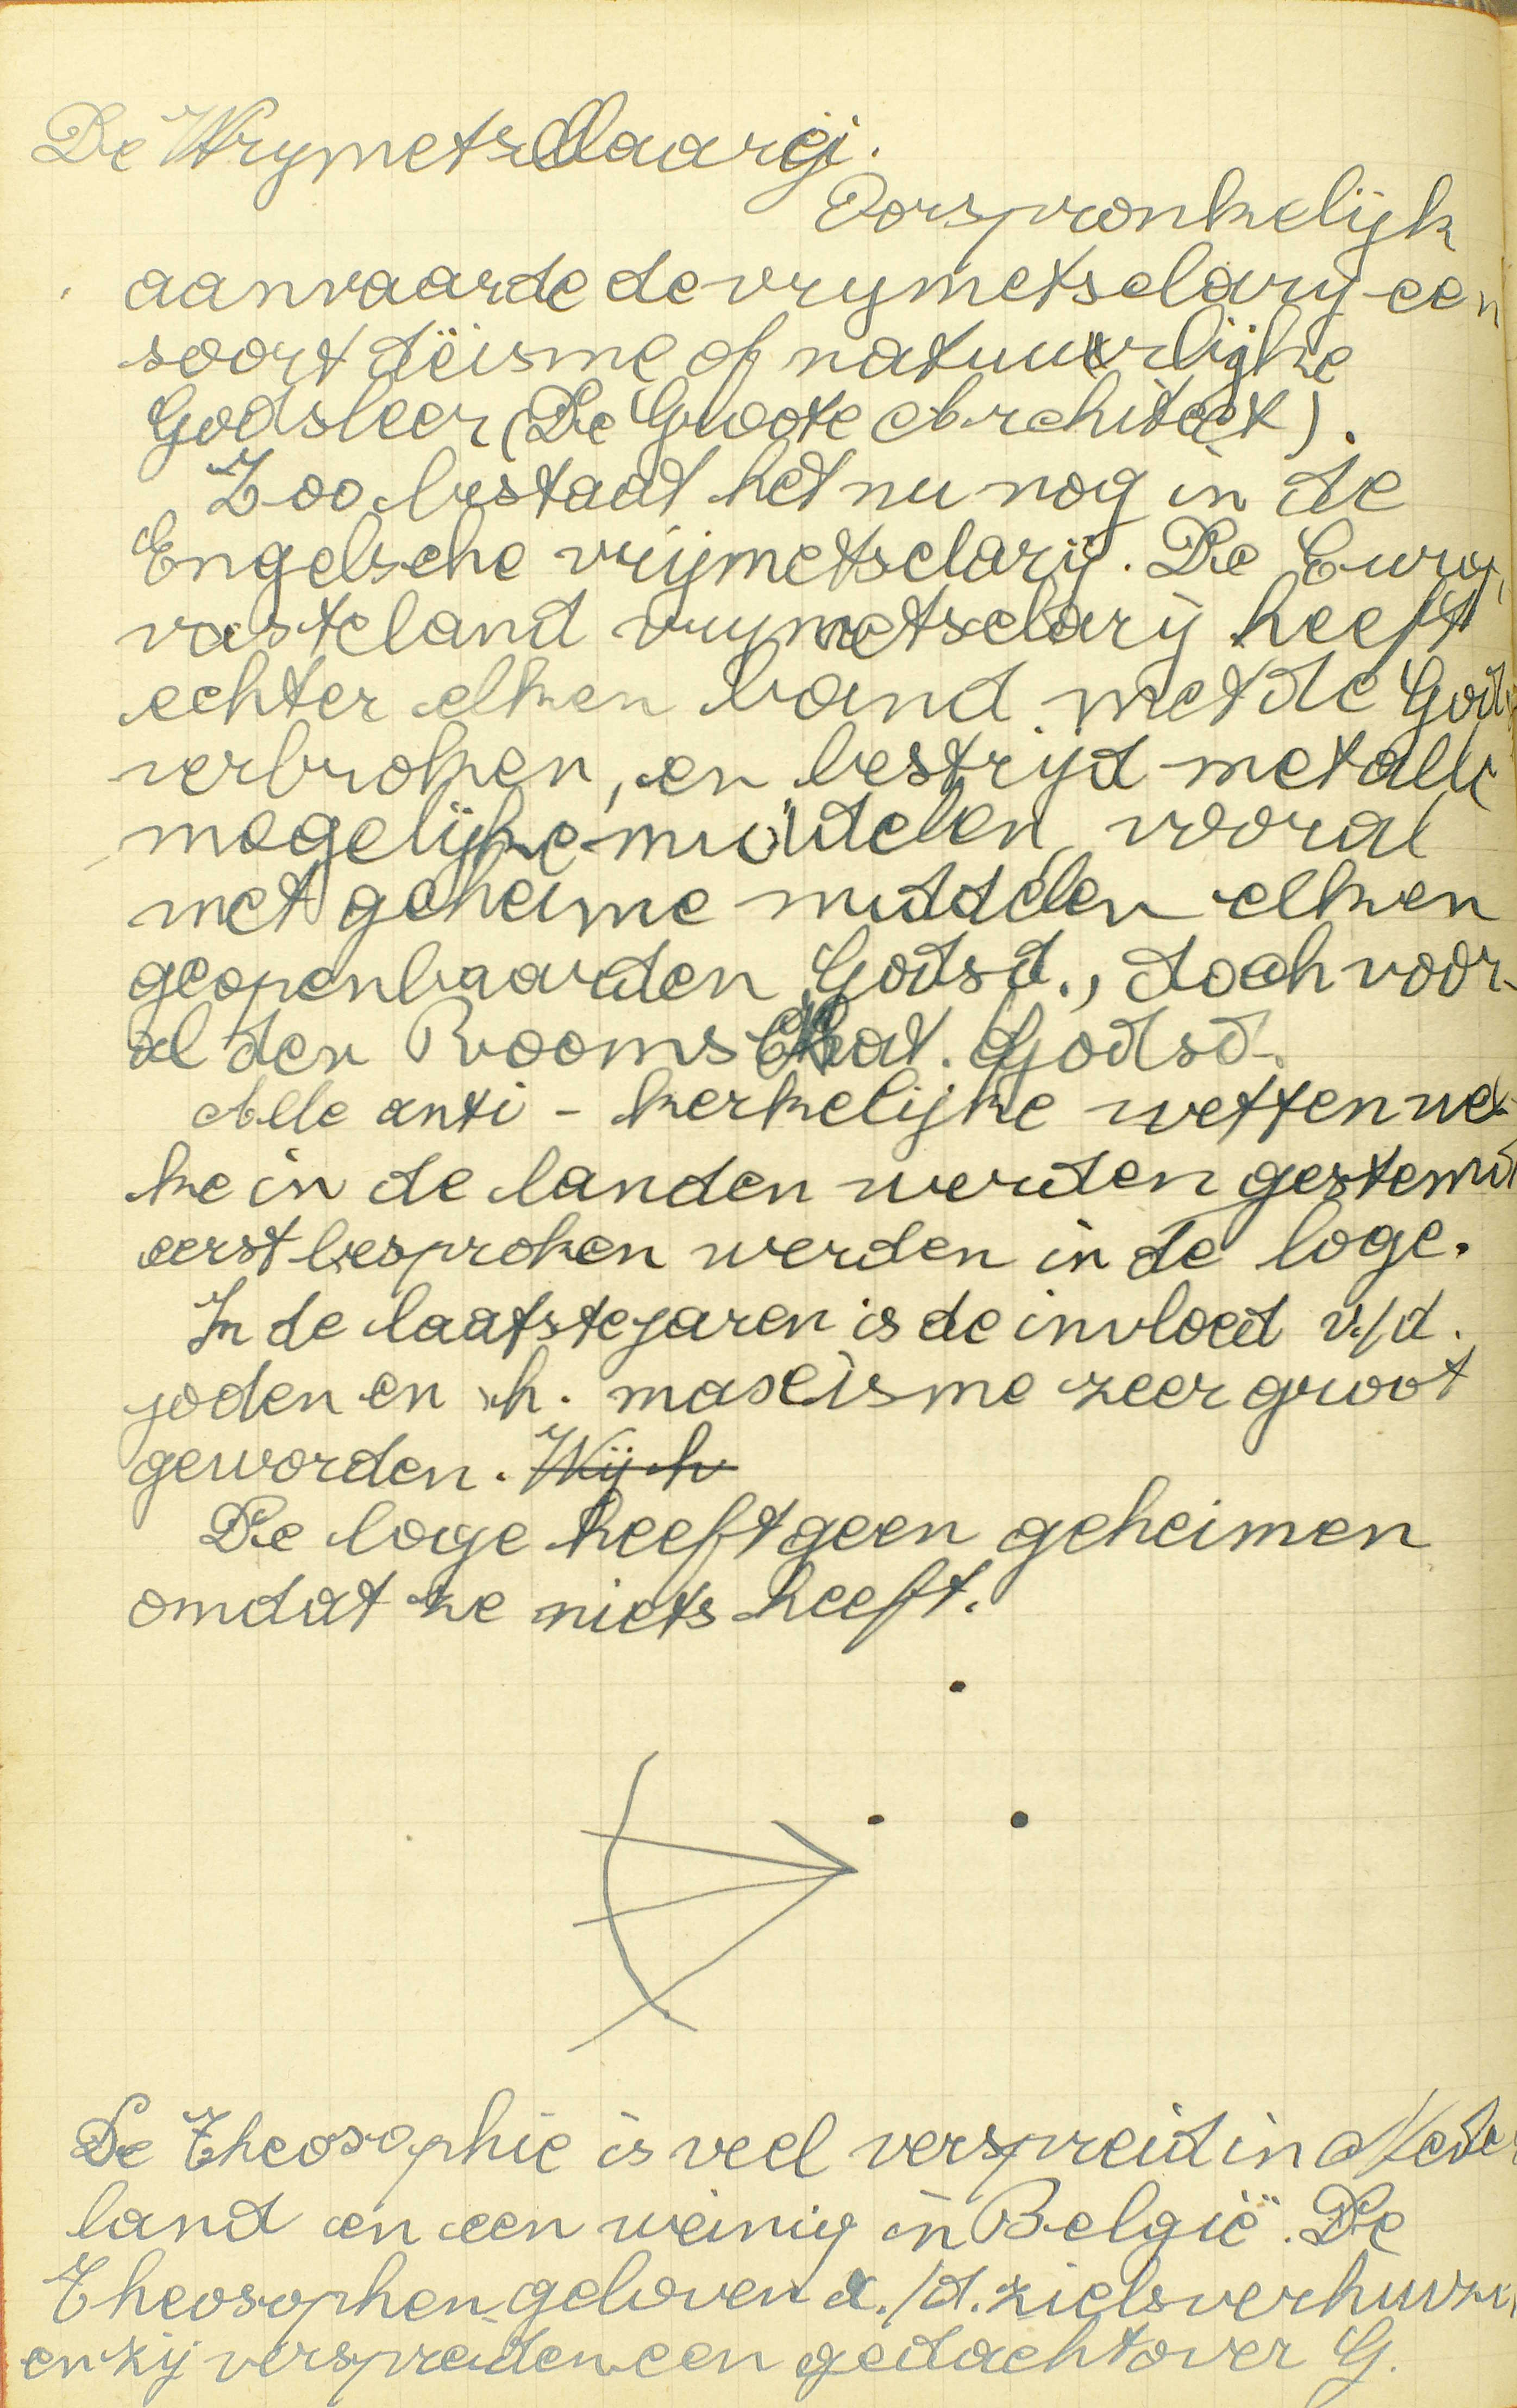 De Vrymetselaarij.
Oorspronkelijk
aanvaarde de vrymetselary een
soort dëisme of natuurlijke
Godsleer (De Groote Architect).
Zoo bestaat het nu nog in de
Engelsche vrijmetselarij. De Euro
vasteland vrymetselary heeft
echter elken band met de God
verbroken, en bestrijd met alle
mogelijke middelen vooral
met geheime middelen elken
geopenbaarden Godsd., doch voor-
al den Rooms Kat. Godsd.
Alle anti - kerkelijke wetten wel-
ke in de landen werden gestemd
eerst besproken werden in de loge.
In de laatste jaren is de invloed v./d.
joden en h. maxisme zeer groot
geworden. Wij h
De loge heeft geen geheimen
omdat ze niets heeft.
De Theosophie is veel verspreid in Neder
land en een weinig in België. De
Theosophen geloven a./d. zielsverhuizi
en zij verspreiden een gedacht over G.